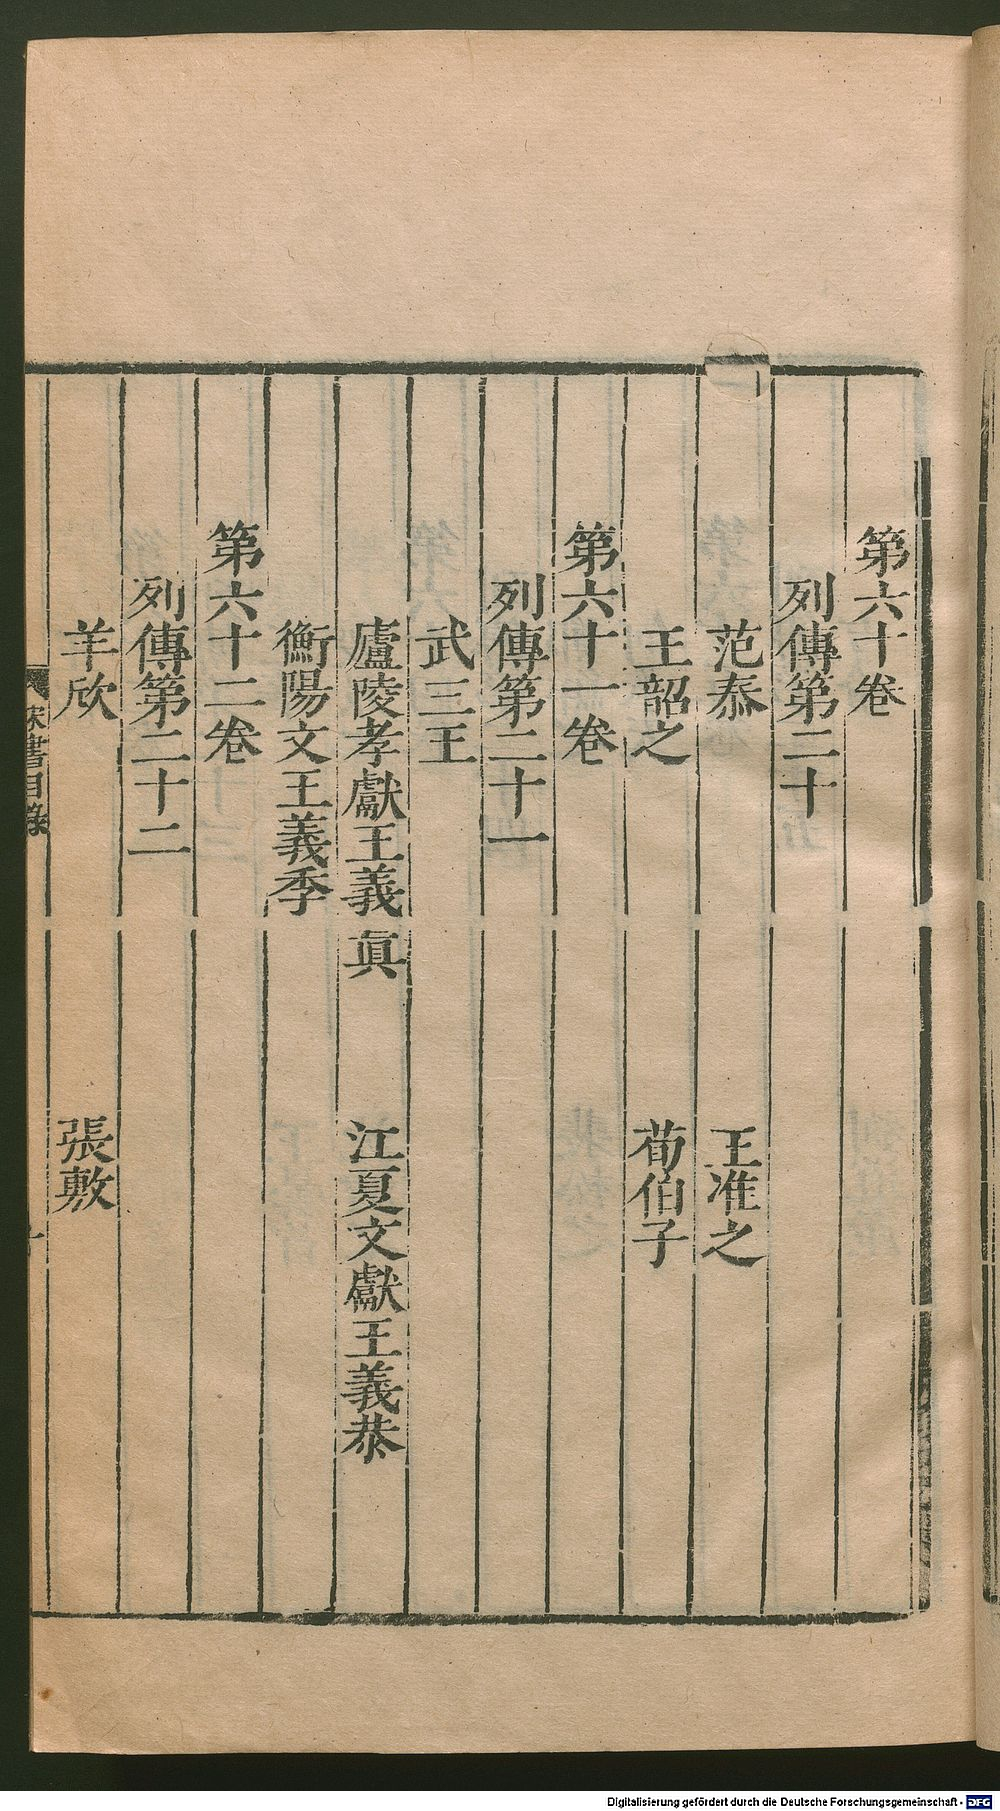 第六十卷
列傳第二十
范泰 王准之
王韶之 荀伯子
第六十一卷
列傳第二十一
武三王
廬陵孝獻王義眞 江夏文獻王義恭
衡陽文王義季
第六十二卷
列傳第二十二
羊欣 張敷
宋書目錄
Digitalisierung gefördert durch die Deutsche Forschungsgemeinschaft - DFG